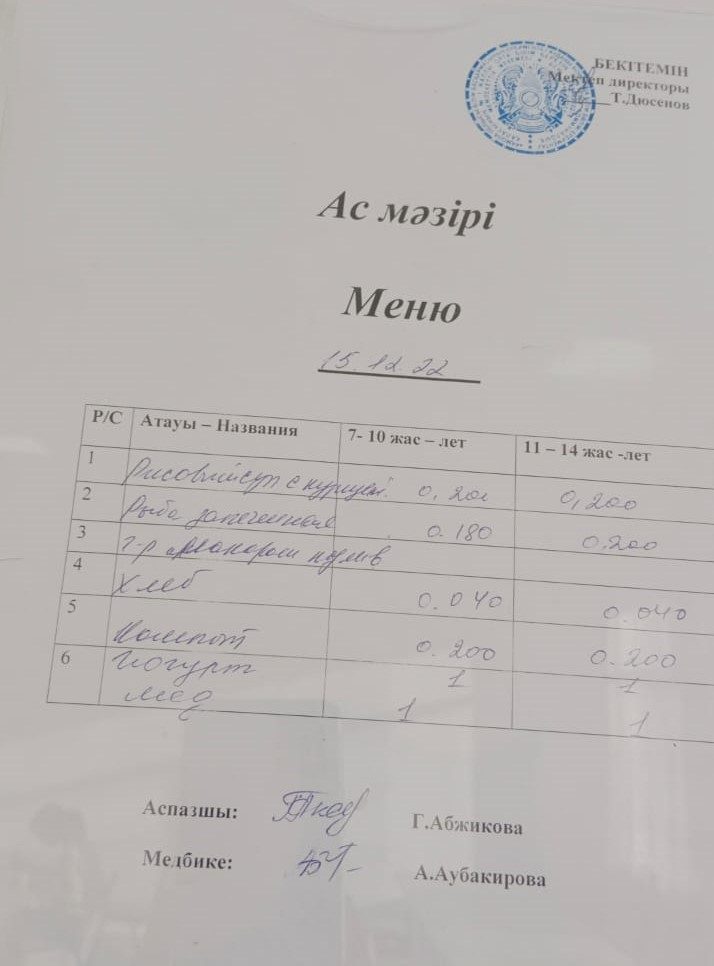 БЕКІТЕМІН
Мектеп директоры
Т.Дюсенов
Ас мәзірі
Меню
15.12.22
Р/С Атауы – Названия 7- 10 жас – лет 11 – 14 жас -лет
1 Рисовый суп с курицей 0,200 0,200
2 Рыба запеченная 0.180 0.200
3 г-р макароны
4 Хлеб 0.040 0.040
5 Компот 0.200 0.200
6 Йогурт 1 1
мед 1 1
Аспазшы: Г.Абжикова
Медбике: А.Аубакирова